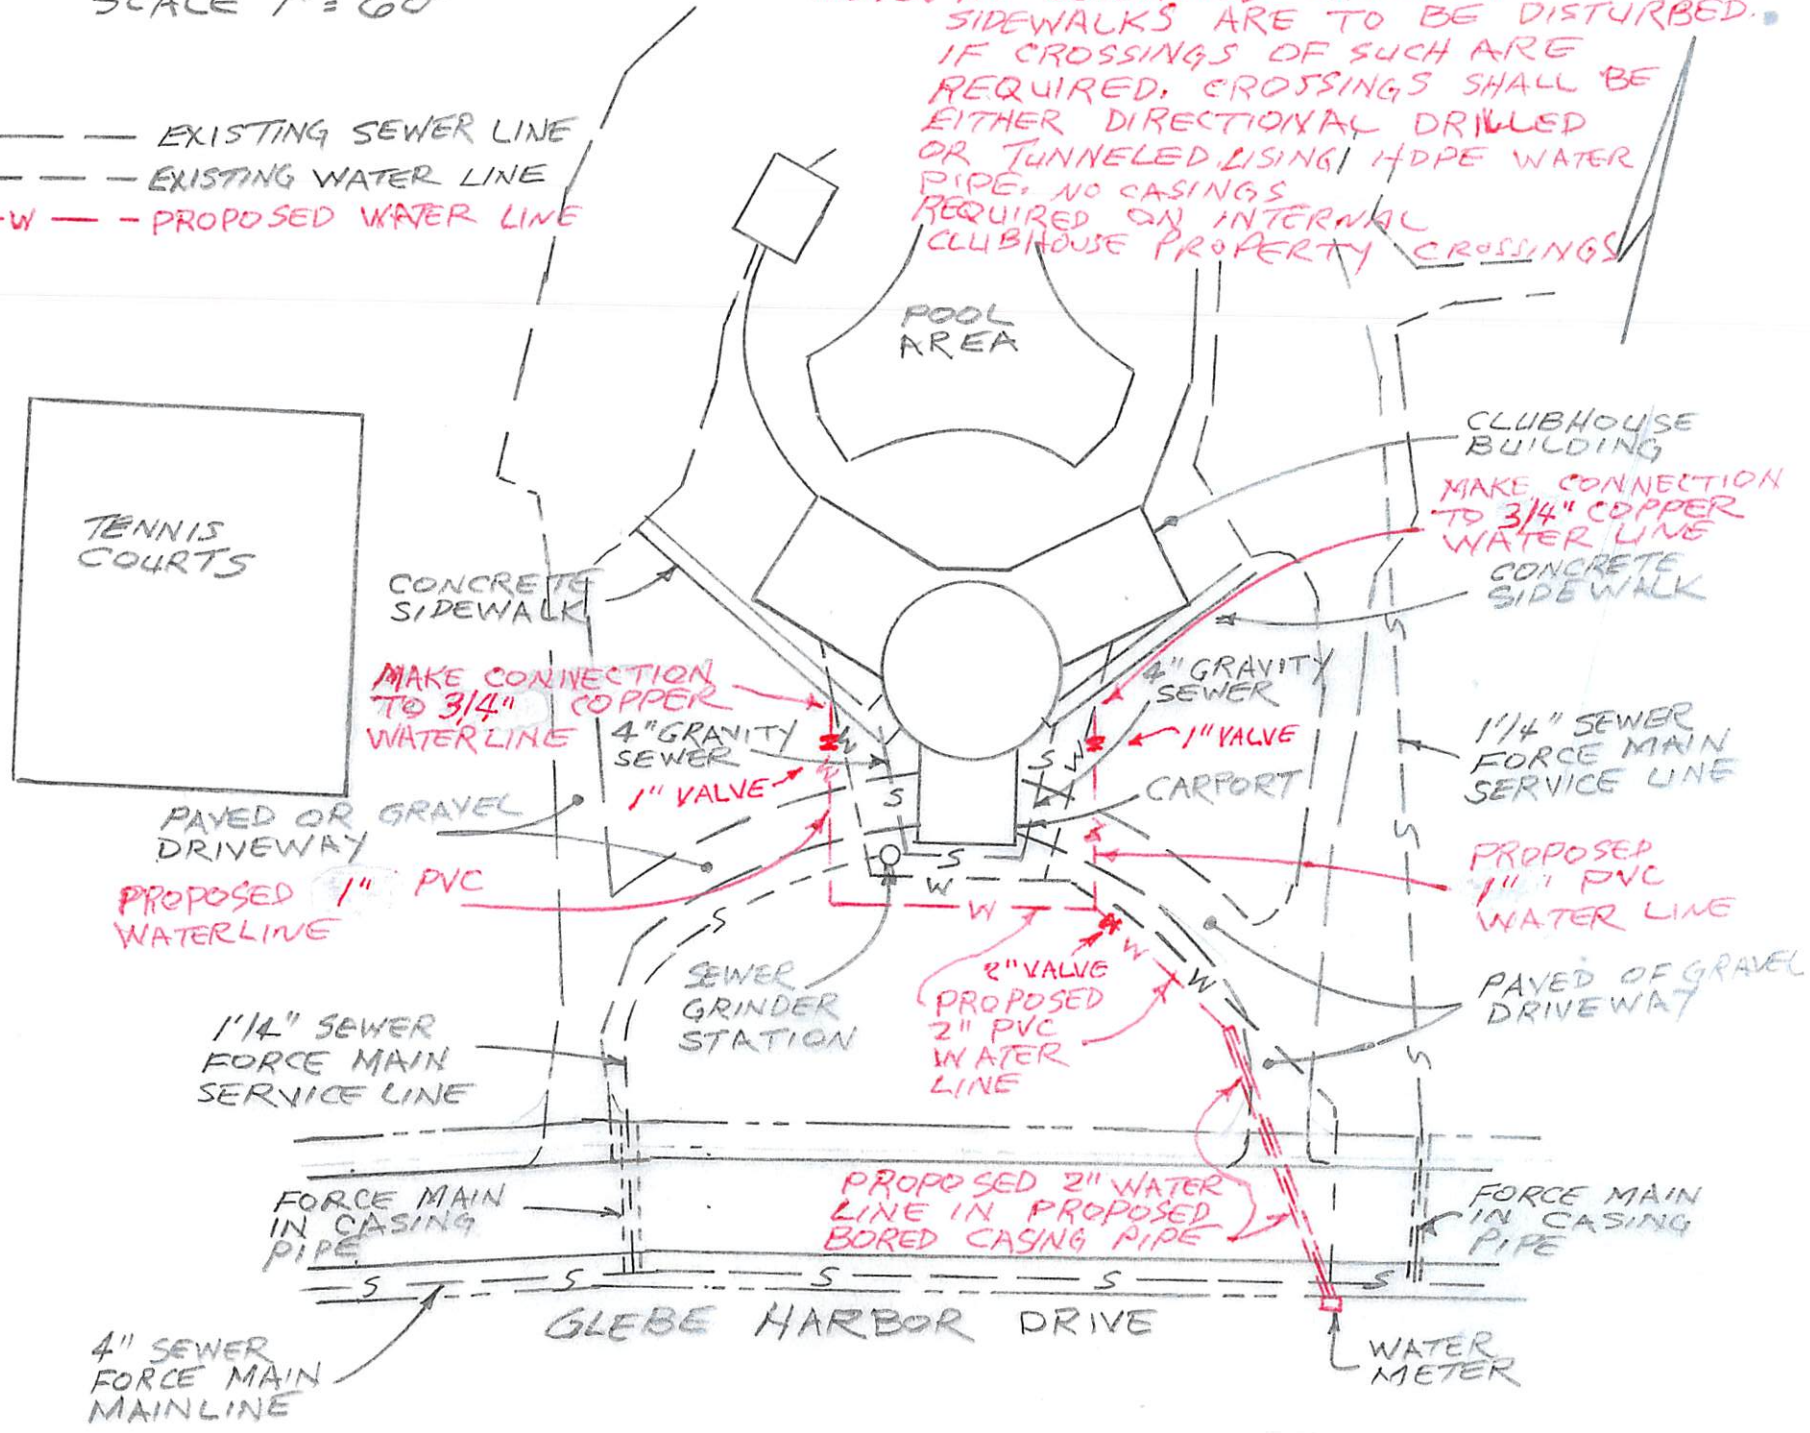 SCALE 1" = 60'
SIDEWALKS ARE TO BE DISTURBED.
IF CROSSINGS OF SUCH ARE
REQUIRED, CROSSINGS SHALL BE
EITHER DIRECTIONAL DRILLED
OR TUNNELED USING HDPE WATER
PIPE. NO CASINGS
REQUIRED ON INTERNAL
CLUBHOUSE PROPERTY CROSSINGS
EXISTING SEWER LINE
EXISTING WATER LINE
W PROPOSED WATER LINE
POOL
AREA
CLUBHOUSE
BUILDING
MAKE CONNECTION
TO 3/4" COPPER
WATER LINE
CONCRETE
SIDEWALK
TENNIS
COURTS
CONCRETE
SIDEWALK
MAKE CONNECTION
TO 3/4" COPPER
WATERLINE
4" GRAVITY
SEWER
1" VALVE
4" GRAVITY
SEWER
1" VALVE
CARPORT
1 1/4" SEWER
FORCE MAIN
SERVICE LINE
PAVED OR GRAVEL
DRIVEWAY
PROPOSED 1" PVC
WATERLINE
PROPOSED
1" PVC
WATER LINE
S
S
S
S
W
W
S
W
W
W
W
W
S
S
S
S
SEWER
GRINDER
STATION
2" VALVE
PROPOSED
2" PVC
WATER
LINE
PAVED OF GRAVEL
DRIVEWAY
1 1/4" SEWER
FORCE MAIN
SERVICE LINE
FORCE MAIN
IN CASING
PIPE
PROPOSED 2" WATER
LINE IN PROPOSED
BORED CASING PIPE
FORCE MAIN
IN CASING
PIPE
S S S S S
GLEBE HARBOR DRIVE
4" SEWER
FORCE MAIN
MAINLINE
WATER
METER